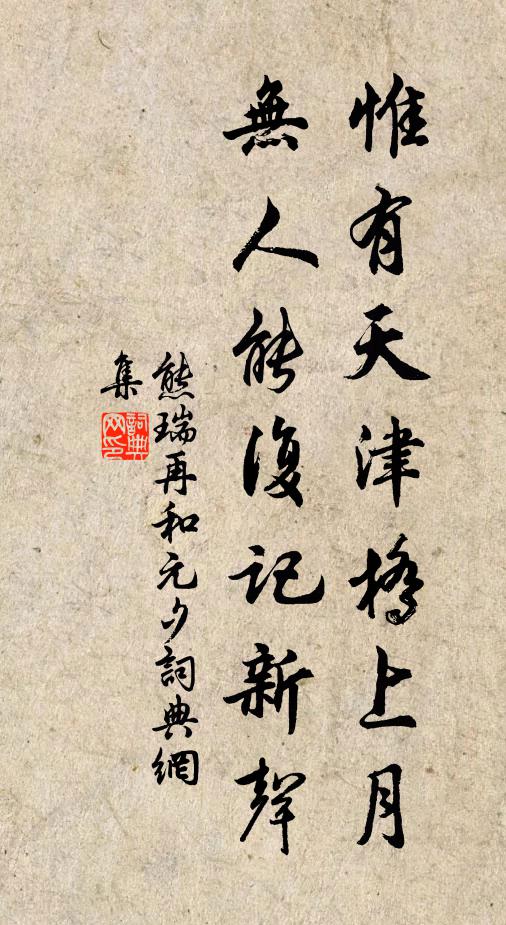 惟有天津橋上月
無人能復記新聲
熊瑞再和元夕詞典網
集
詞典网印